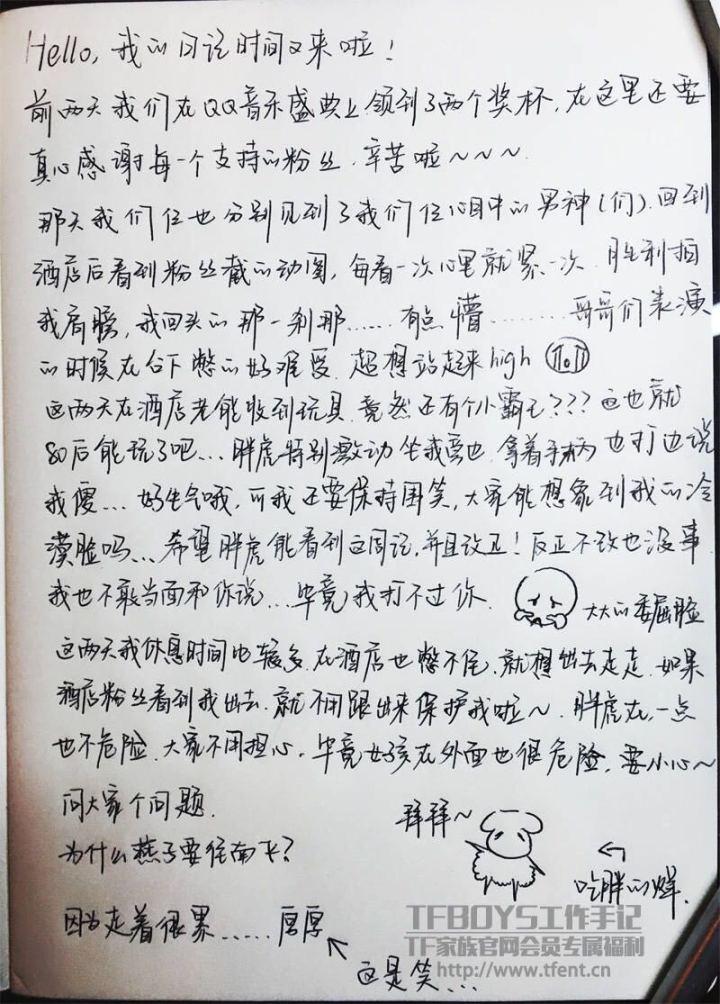 Hello, 我的日记时间又来啦！
前两天我们在QQ音乐盛典上领到了两个奖杯，在这里还要
真心感谢每一个支持的粉丝.辛苦啦～～～
那天我们仨也分别见到了我们仨心目中的男神(们).回到
酒店后看到粉丝截的动图，每看一次心里就紧一次.胜利拍
我肩膀，我回头的那一刹那……有点懵………哥哥们表演
的时候在台下憋的好难受.超想站起来high
这两天在酒店老能收到玩具.竟然还有个小霸王???这也就
80后能玩了吧…胖虎特别激动坐我旁边.拿着手柄边打边说
我傻…好生气哦，可我还要保持围笑，大家能想象到我的冷
漠脸吗…希望胖虎能看到这周记，并且改正！反正不改也没事
我也不敢当面和你说…毕竟我打不过你.
大大的委屈脸
这两天我休息时间比较多.在酒店也憋不住，就想出去走走.如果
酒店粉丝看到我出去.就不用跟出来保护我啦～.胖虎在，一点
也不危险.大家不用担心.毕竟女孩在外面也很危险，要小心～
问大家个问题.
拜拜～
为什么燕子要往南飞？
吃胖的烊.
因为走着很累……厚厚
这是笑…
TFBOYS工作手记
TF家族官网会员专属福利
http://www.tfent.cn